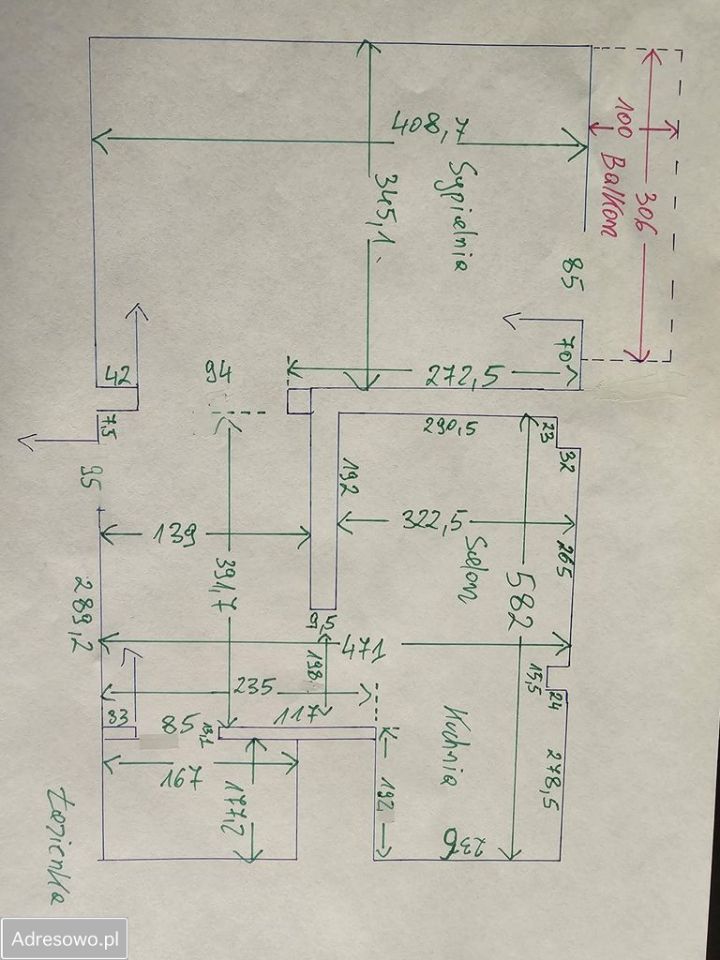 408,7
345,1
Sypialnia
100
306
Balkon
85
70
272,5
42
94
7,5
95
290,5
23
32
192
322,5
Salon
265
582
139
391,7
289,2
9,5
471
198
15,5
24
235
117
33
85
13,1
167
177,2
192
Kuchnia
278,5
236
Łazienka
Adresowo.pl